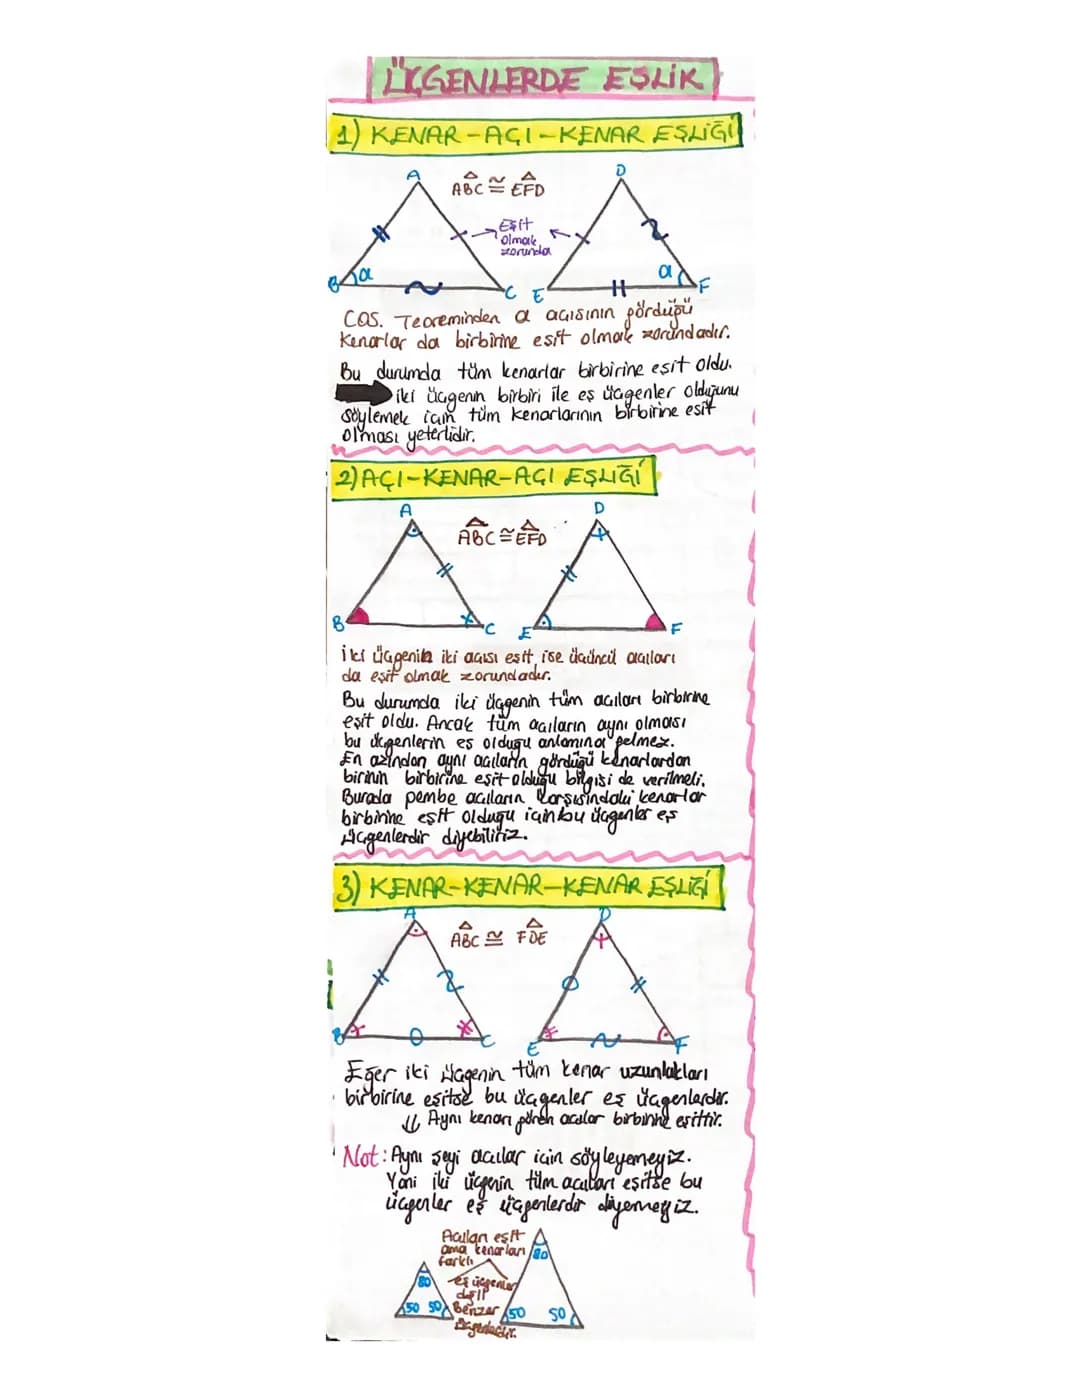 ÜÇGENLERDE EŞLİK
1) KENAR-AÇI-KENAR EŞLİĞİ
A
ABC ≅ EFD
D
Eşit
olmak
zorunda
B α
C
E
α F
COS. Teoreminden α açısının gördüğü
kenarlar da birbirine eşit olmak zorundadır.
Bu durumda tüm kenarlar birbirine eşit oldu.
iki üçgenin birbiri ile eş üçgenler olduğunu
söylemek için tüm kenarlarının birbirine eşit
olması yeterlidir.
2) AÇI-KENAR-AÇI EŞLİĞİ
A
ABC ≅ EFD
D
B
C
E
F
İki üçgenin iki açısı eşit ise üçüncü açıları
da eşit olmak zorundadır.
Bu durumda iki üçgenin tüm açıları birbirine
eşit oldu. Ancak tüm açıların aynı olması
bu üçgenlerin eş olduğu anlamına gelmez.
En azından aynı açıların gördüğü kenarlardan
birinin birbirine eşit olduğu bilgisi de verilmeli.
Burada pembe açıların karşısındaki kenarlar
birbirine eşit olduğu için bu üçgenler eş
üçgenlerdir diyebiliriz.
3) KENAR-KENAR-KENAR EŞLİĞİ
A
ABC ≅ FDE
D
B
C
E
F
Eğer iki üçgenin tüm kenar uzunlukları
birbirine eşitse bu üçgenler eş üçgenlerdir.
⇓ Aynı kenarı gören açılar birbirine eşittir.
Not: Aynı şeyi açılar için söyleyemeyiz.
Yani iki üçgenin tüm açıları eşitse bu
üçgenler eş üçgenlerdir diyemeyiz.
Açıları eşit
ama kenarları
farklı
80
80
eş üçgenler
değil
Benzer
üçgenlerdir.
50 50
50 50